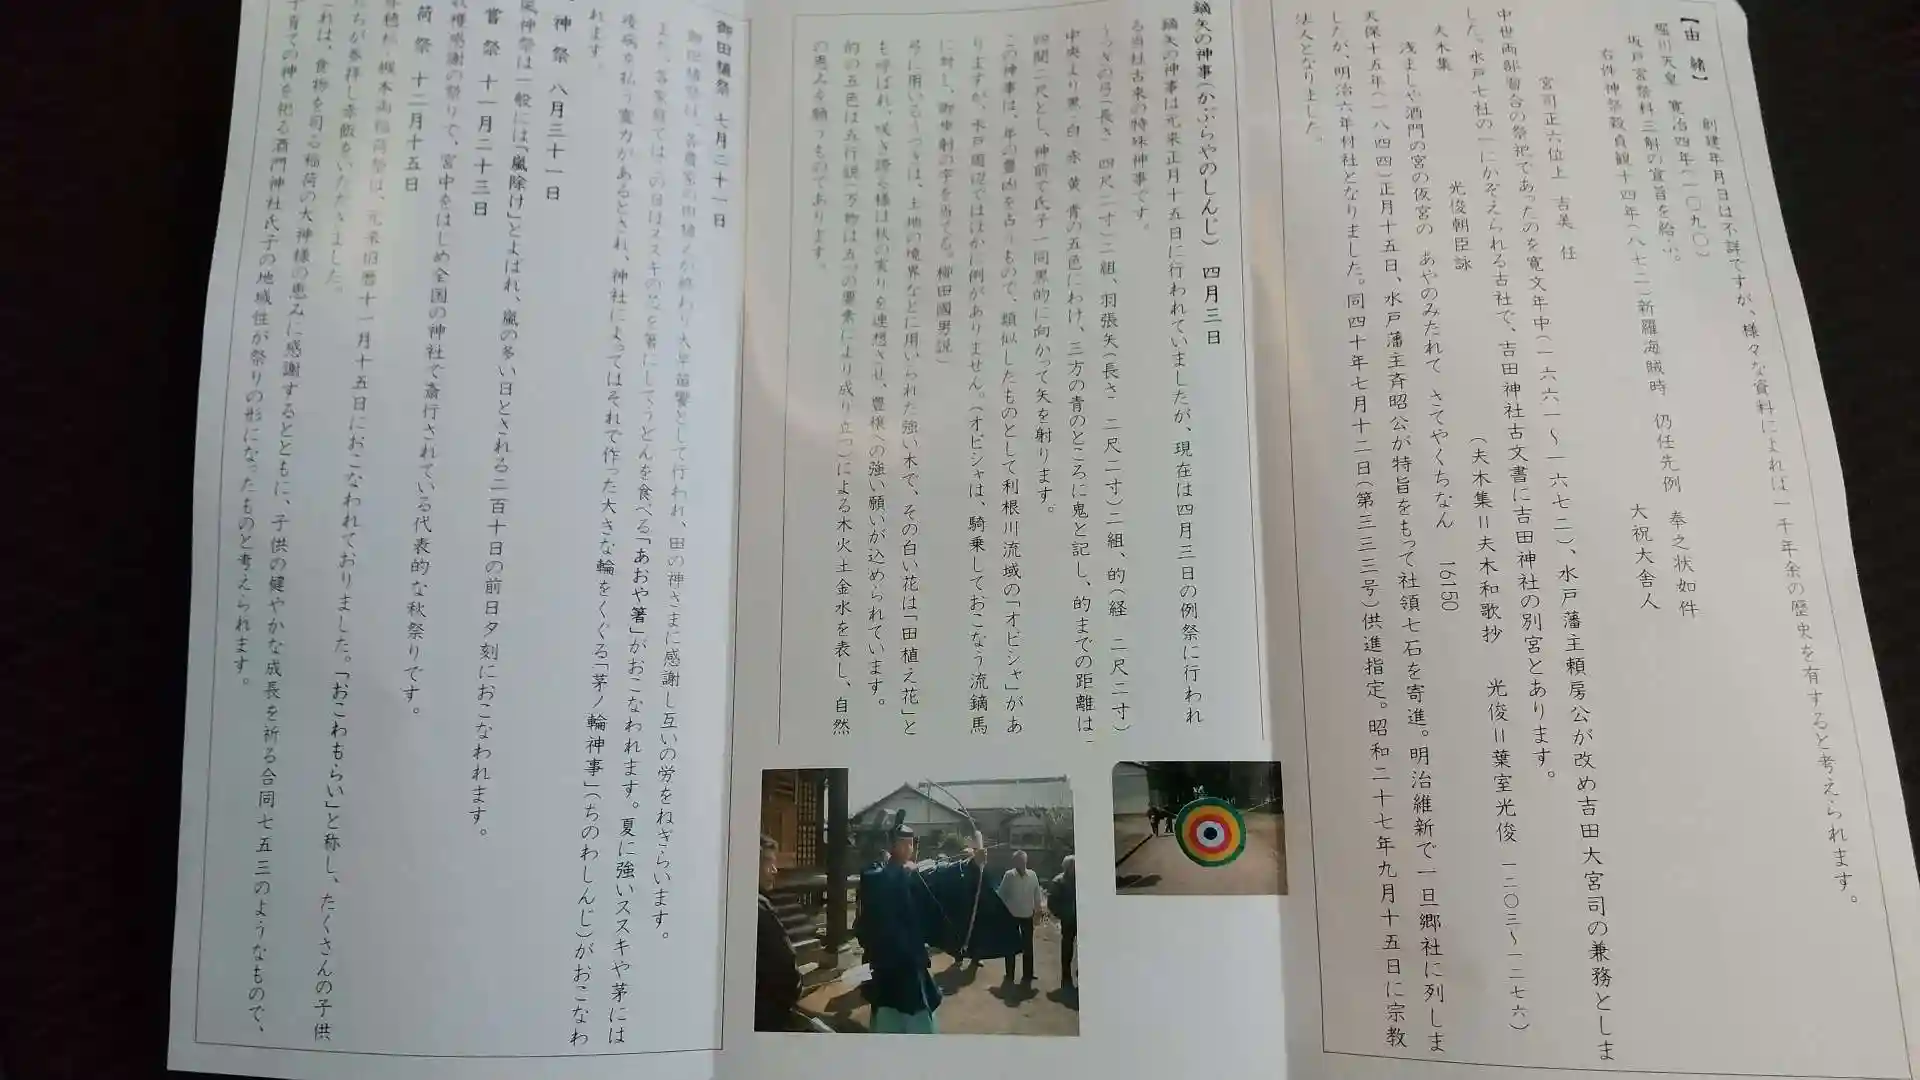 【由緒】
創建年月日は不詳ですが、様々な資料によれば一千年余の歴史を有すると考えられます。
堀川天皇 寛治四年(一〇九〇)
坂戸宮祭料三斛の宣旨を給ふ。
右件神祭穀貞観十四年(八七二)新羅海賊時 仍任先例 奉之状如件
大祝大舎人
宮司正六位上 吉美 任
中世両部習合の祭祀であったのを寛文年中(一六六一～一六七二)、水戸藩主頼房公が改め吉田大宮司の兼務としま
した。水戸七社の一にかぞえられる古社で、吉田神社古文書に吉田神社の別宮とあります。
夫木集 光俊朝臣詠 (夫木集＝夫木和歌抄 光俊＝葉室光俊 一二〇三～一二七六)
浅ましや酒門の宮の仮宮の あやのみたれて さてやくちなん 16150
天保十五年(一八四四)正月十五日、水戸藩主斉昭公が特旨をもって社領七石を寄進。明治維新で一旦郷社に列しま
したが、明治六年村社となりました。同四十年七月十二日(第三三三号)供進指定。昭和二十七年九月十五日に宗教
法人となりました。
鏑矢の神事(かぶらやのしんじ) 四月三日
鏑矢の神事は元来正月十五日に行われていましたが、現在は四月三日の例祭に行われ
る当社古来の特殊神事です。
うつぎの弓(長さ 四尺二寸)二組、羽張矢(長さ 二尺二寸)二組、的(経 二尺二寸)
中央より黒・白・赤・黄・青の五色にわけ、三方の青のところに鬼と記し、的までの距離は
四間二尺とし、神前で氏子一同黒的に向かって矢を射ります。
この神事は、年の豊凶を占うもので、類似したものとして利根川流域の「オビシャ」があ
りますが、水戸周辺ではほかに例がありません。(オビシャは、騎乗しておこなう流鏑馬
に対し、御歩射の字を当てる。柳田國男説)
弓に用いるうつぎは、土地の境界などに用いられた強い木で、その白い花は「田植え花」と
も呼ばれ、咲き誇る様は秋の実りを連想させ、豊穣への強い願いが込められています。
的の五色は五行説(万物は五つの要素により成り立つ)による木火土金水を表し、自然
の恵みを願うものであります。
御田植祭 七月二十一日
御田植祭は、各農家の田植えが終わり大早苗饗として行われ、田の神さまに感謝し互いの労をねぎらいます。
また、各家庭ではこの日はススキの芯を箸にしてうどんを食べる「あおや箸」がおこなわれます。夏に強いススキや茅には
疫病を払う霊力があるとされ、神社によってはそれで作った大きな輪をくぐる「茅ノ輪神事」(ちのわしんじ)がおこなわ
れます。
神祭 八月三十一日
風神祭は一般には「嵐除け」とよばれ、嵐の多い日とされる二百十日の前日夕刻におこなわれます。
嘗祭 十一月二十三日
収穫感謝の祭りで、宮中をはじめ全国の神社で斎行されている代表的な秋祭りです。
荷祭 十二月十五日
稲荷祭は、元来旧暦十一月十五日におこなわれておりました。「おこわもらい」と称し、たくさんの子供
たちが参拝し赤飯をいただきました。
れは、食物を司る稲荷の大神様の恵みに感謝するとともに、子供の健やかな成長を祈る合同七五三のようなもので、
子育ての神を祀る酒門神社氏子の地域性が祭りの形になったものと考えられます。